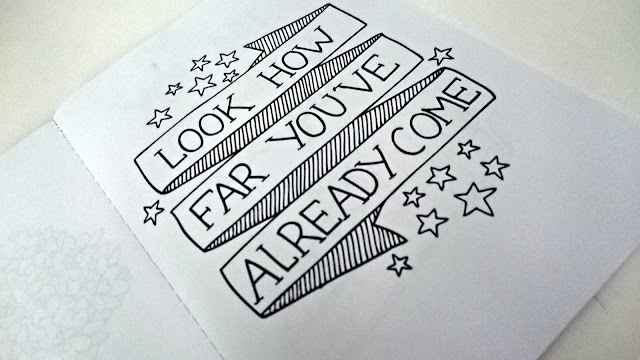 LOOK HOW
FAR YOU'VE
ALREADY COME